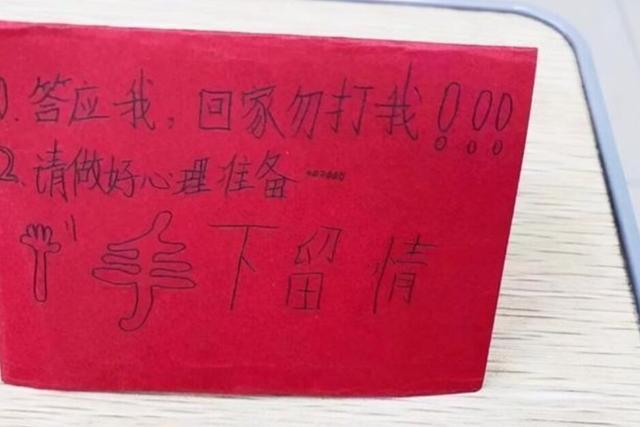 1.答应我,回家勿打我!!!
2.请做好心理准备……
手下留情